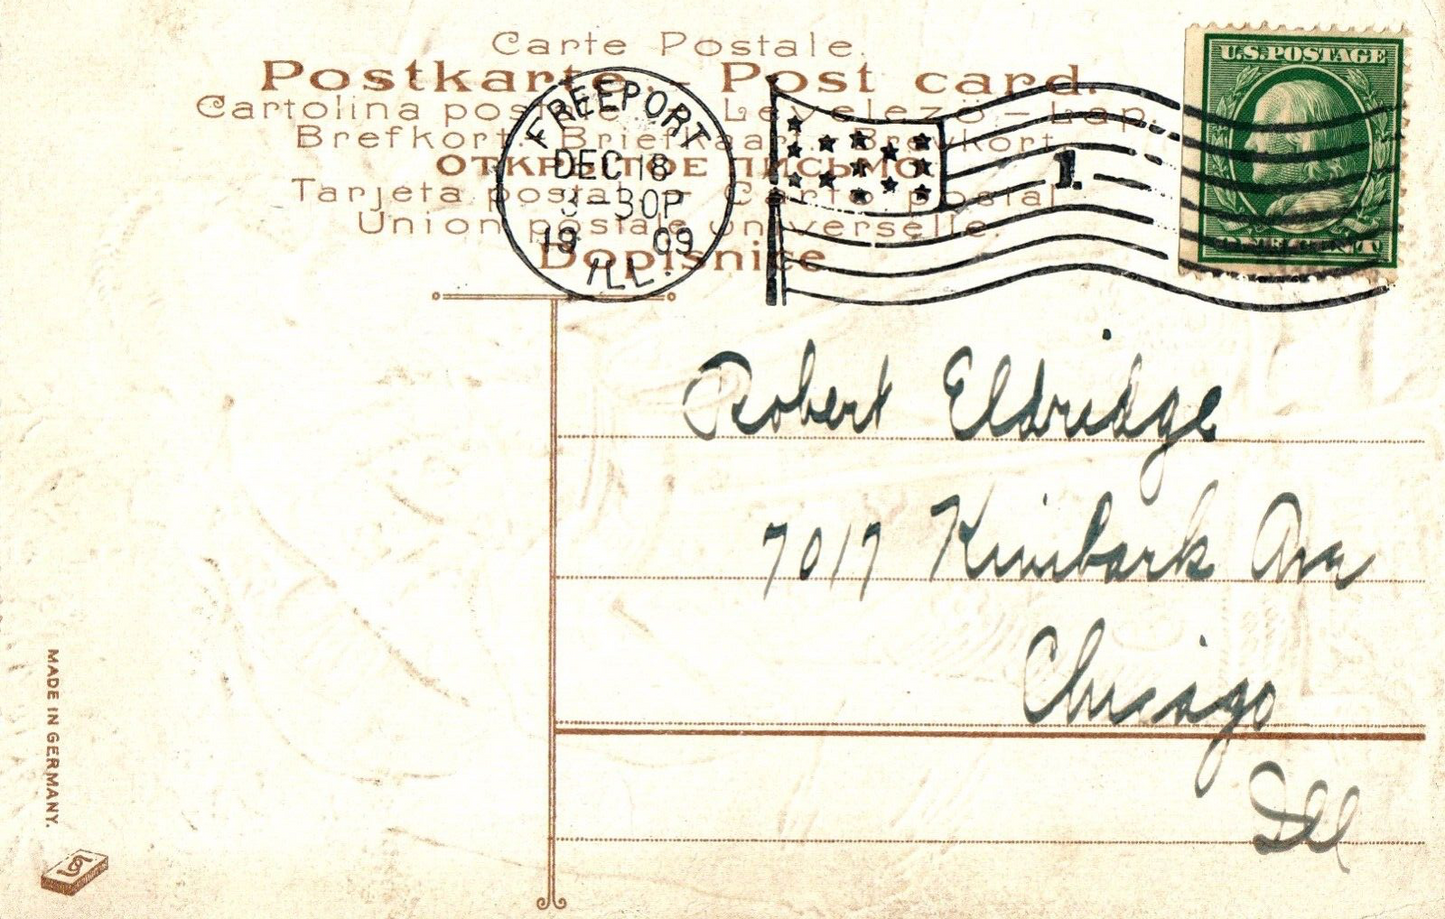 Carte Postale.
Postkarte – Post card.
Cartolina postale – Levelező – Lap.
Brefkort. Briefkaart. Brevkort.
ОТКРЫТОЕ ПИСЬМО.
Tarjeta postal – Carte postal.
Union postale universelle.
Dopisnice
FREEPORT
DEC 18
3-30P
19 09
ILL.
1
U.S. POSTAGE
Robert Eldridge
7017 Kimbark Ave
Chicago
Ill
MADE IN GERMANY.